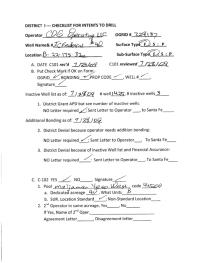 DISTRICT I --- CHECKLIST FOR INTENTS TO DRILL
Operator COG Operating LLC OGRID # 229137
Well Name& # Federal #40 Surface Type F S P
Location B-22-17S-32e Sub-Surface Type F S P
A. DATE C101 rec'd C101 reviewed
B. Put Check Mark if OK on Form:
OGRID, BONDING, PROP CODE, WELL #,
Signature
Inactive Well list as of: # well Inactive wells
1. District Grant APD but see number of inactive wells:
NO Letter required; Sent Letter to Operator to Santa Fe
Additional Bonding as of:
2. District Denial because operator needs addition bonding:
NO Letter required; Sent Letter to Operator To Santa Fe
3. District Denial because of Inactive Well list and Financial Assurance:
NO Letter required Sent Letter to Operator To Santa Fe
C. C-102 YES NO, Signature
1. Pool Maljamar Yeso West code
a. Dedicated acreage, What Units
b. SUR. Location Standard; Non-Standard Location
2. 2nd Operator in same acreage, Yes, No
If Yes, Name of 2nd Oper
Agreement Letter, Disagreement letter